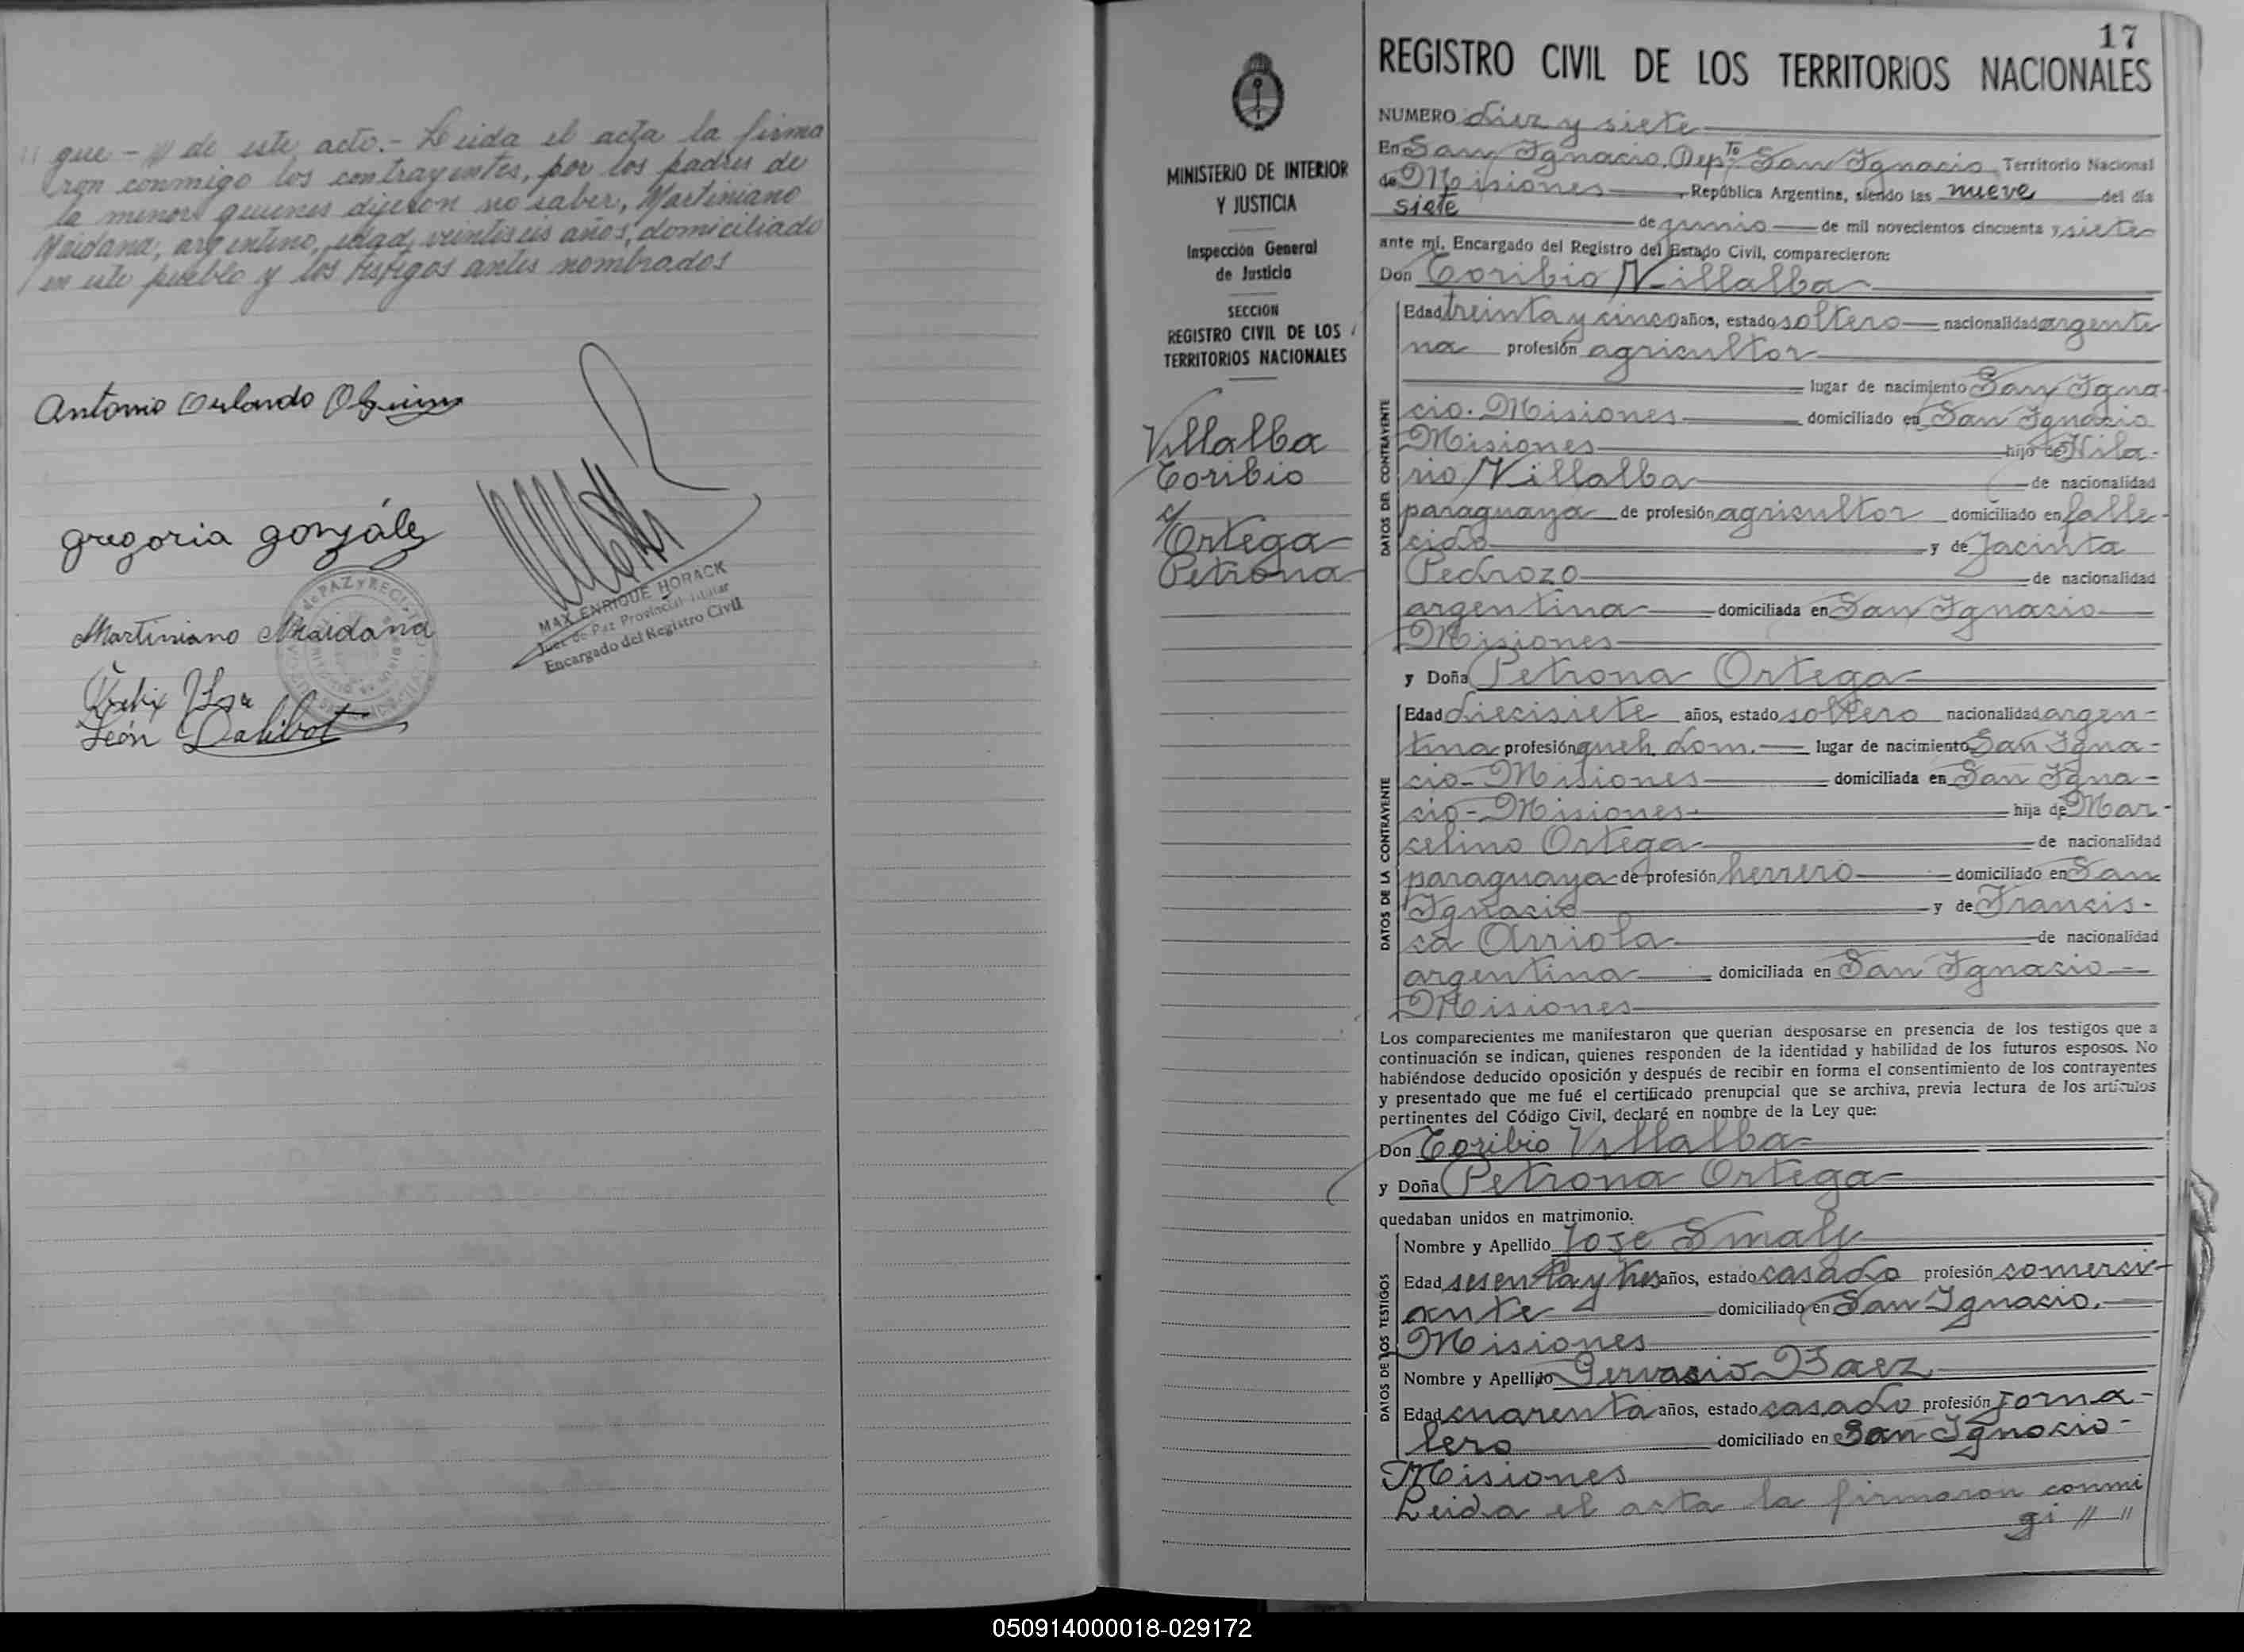 que - // de este acto.- Leida el acta la firma
ron conmigo los contrayentes, por los padres de
la menor quienes dijeron no saber, Martiniano
Maidana, argentino, edad, veintiseis años, domiciliado
en este pueblo y los testigos antes nombrados
Antonio Orlando
gregoria gonzález
Martiniano Maidana
León Dalibot
MAX ENRIQUE HORACK
Juez de Paz Provincial Titular
Encargado del Registro Civil
MINISTERIO DE INTERIOR
Y JUSTICIA
Inspección General
de Justicia
SECCION
REGISTRO CIVIL DE LOS
TERRITORIOS NACIONALES
Villalba
Toribio
y
Ortega
Petrona
17
REGISTRO CIVIL DE LOS TERRITORIOS NACIONALES
NUMERO diez y siete
En San Ignacio, Dep.to San Ignacio Territorio Nacional
de Misiones, República Argentina, siendo las nueve del día
siete de junio de mil novecientos cincuenta y siete
ante mí, Encargado del Registro del Estado Civil, comparecieron:
Don Toribio Villalba
DATOS DEL CONTRAYENTE
Edad treinta y cinco años, estado soltero nacionalidad argenti
na profesión agricultor
lugar de nacimiento San Igna-
cio. Misiones domiciliado en San Ignacio
Misiones hijo de Hila-
rio Villalba de nacionalidad
paraguaya de profesión agricultor domiciliado en falle-
cido y de Jacinta
Pedrozo de nacionalidad
argentina domiciliada en San Ignacio
Misiones
y Doña Petrona Ortega
DATOS DE LA CONTRAYENTE
Edad diecisiete años, estado soltero nacionalidad argen-
tina profesión queh. dom. lugar de nacimiento San Igna-
cio- Misiones domiciliada en San Igna-
cio- Misiones. hija de Mar-
celino Ortega de nacionalidad
paraguaya de profesión herrero domiciliado en San
Ignacio y de Francis-
ca Arriola de nacionalidad
argentina domiciliada en San Ignacio
Misiones
Los comparecientes me manifestaron que querían desposarse en presencia de los testigos que a
continuación se indican, quienes responden de la identidad y habilidad de los futuros esposos. No
habiéndose deducido oposición y después de recibir en forma el consentimiento de los contrayentes
y presentado que me fué el certificado prenupcial que se archiva, previa lectura de los artículos
pertinentes del Código Civil, declaré en nombre de la Ley que:
Don Toribio Villalba
y Doña Petrona Ortega
quedaban unidos en matrimonio.
DATOS DE LOS TESTIGOS
Nombre y Apellido Jose Smaly
Edad sesenta y tres años, estado casado profesión comerci-
ante domiciliado en San Ignacio.
Misiones
Nombre y Apellido Gervasio Baez
Edad cuarenta años, estado casado profesión jorna-
lero domiciliado en San Ignacio-
Misiones
Leida el acta la firmaron conmi
gi // "
050914000018-029172